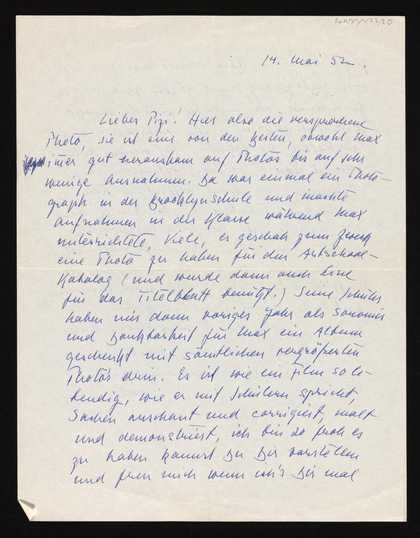 14. Mai 52.
Lieber Pizi! Hier also die versprochene
Photo, sie ist eine von den besten, obwohl Max
immer gut herauskam auf Photos bis auf sehr
wenige Ausnahmen. Da war einmal ein Photo-
graph in der Brooklynschule und machte
Aufnahmen in der Klasse während Max
unterrichtete, viele, es geschah zum Zweck
eine Photo zu haben für den Artschool-
Katalog (und wurde dann auch eine
für das Titelblatt benützt.) Seine Schüler
haben mir dann voriges Jahr als
und Dankbarkeit für Max ein Album
geschenkt mit sämtlichen vergrößerten
Photos drin. Es ist wie ein Film so le-
bendig, wie er mit Schülern spricht,
Sachen anschaut und corrigiert, malt
und demonstriert, ich bin so froh es
zu haben kannst Du Dir vorstellen
und freu mich wenn ich's Dir mal